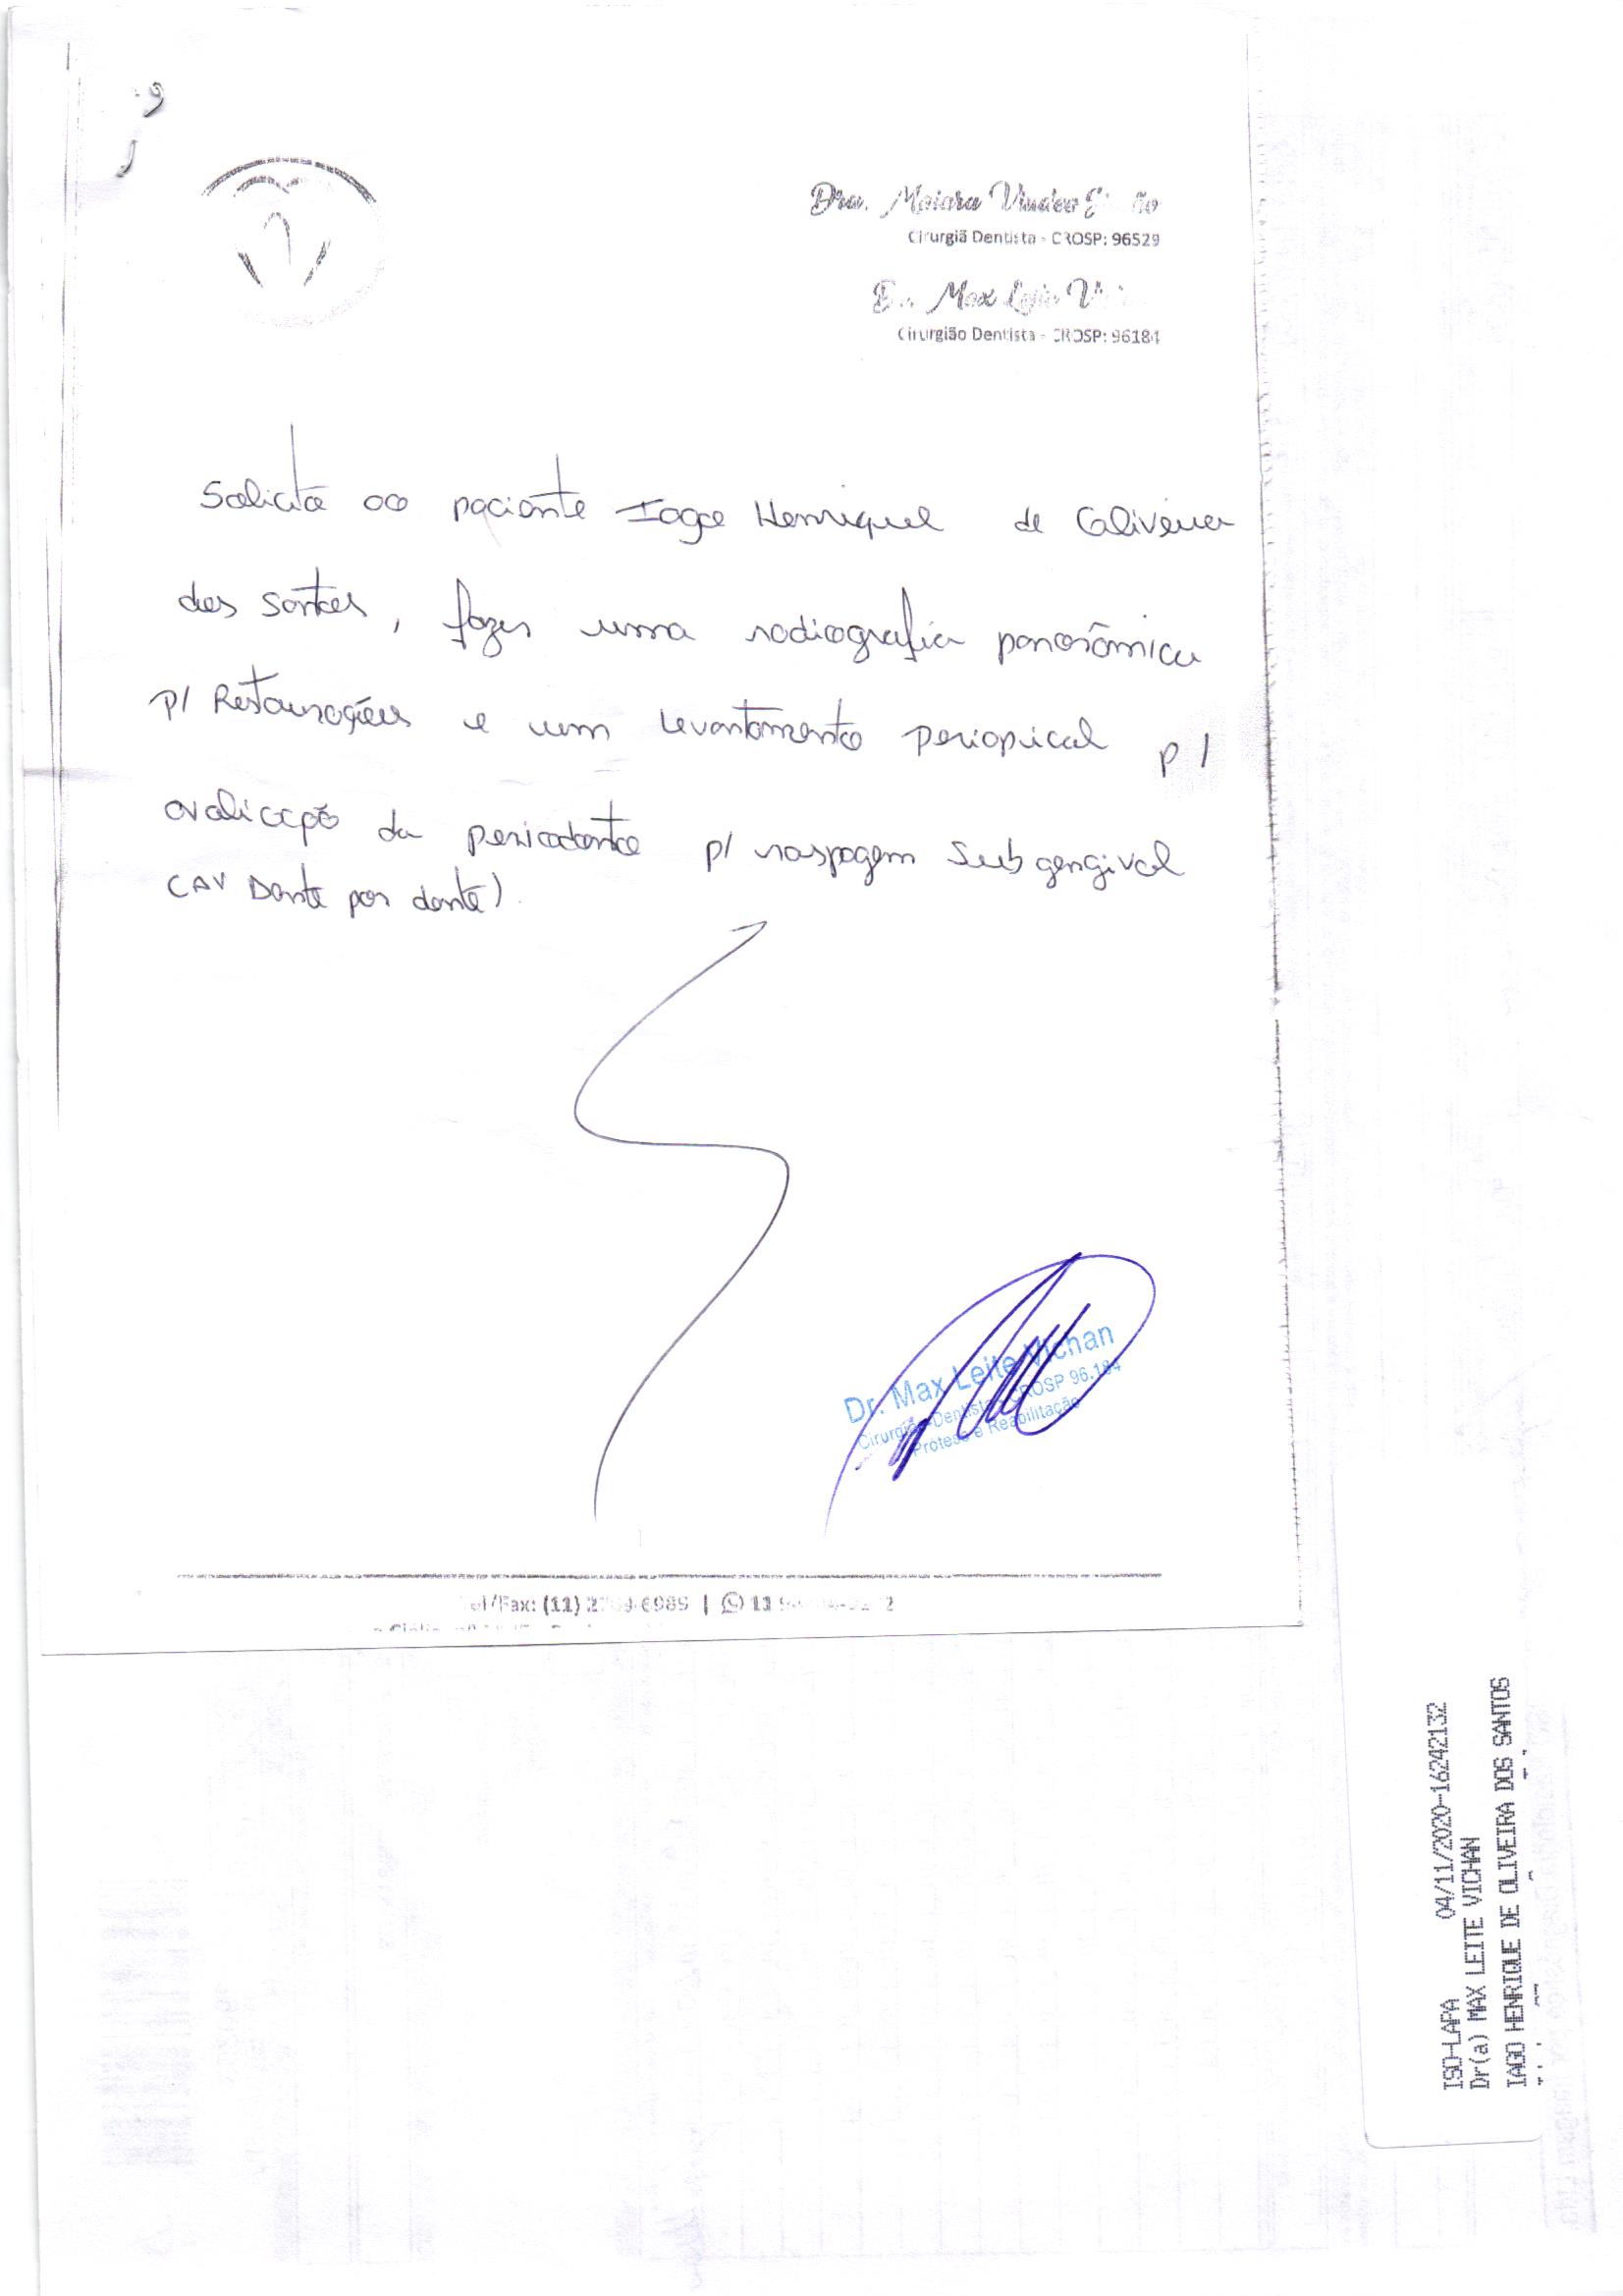 Dra. Maiara
Cirurgiã Dentista - CROSP: 96529
Max
Cirurgião Dentista - CROSP: 96184
Solicito ao paciente Iago Henrique de Oliveira
dos Santos, fazer uma radiografia panorâmica
p/ Restaurações e um levantamento periapical p/
avaliação da periodonto p/ raspagem Subgengival
(AV Dente por dente).
Dr. Max Leite Vichan
Cirurgião-Dentista - CROSP 96.184
Prótese e Reabilitação
Tel/Fax: (11)
ISO-LAPA 04/11/2020-16242132
Dr(a) MAX LEITE VICHAN
IAGO HENRIQUE DE OLIVEIRA DOS SANTOS